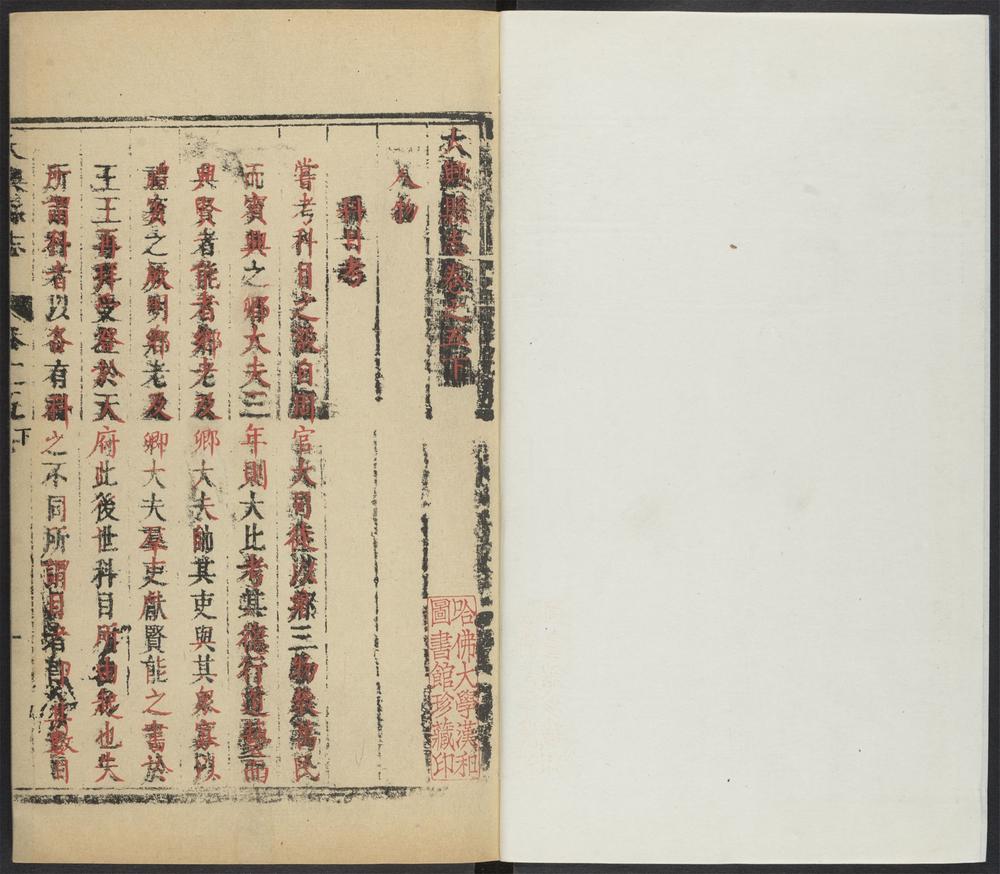 大興縣志卷之五下
人物
科目考
嘗考科目之設自周官大司徒以鄉三物教萬民
而賓興之鄉大夫三年則大比考其德行道藝而
興賢者能者鄉老及鄉大夫帥其吏與其眾寡以
禮賓之厥明鄉老及鄉大夫羣吏獻賢能之書於
王王再拜受登於天府此後世科目所由起也夫
所謂科者以各有科之不同所謂目者即其數目
大興縣志 卷之五下 一
哈佛大學漢和
圖書館珍藏印